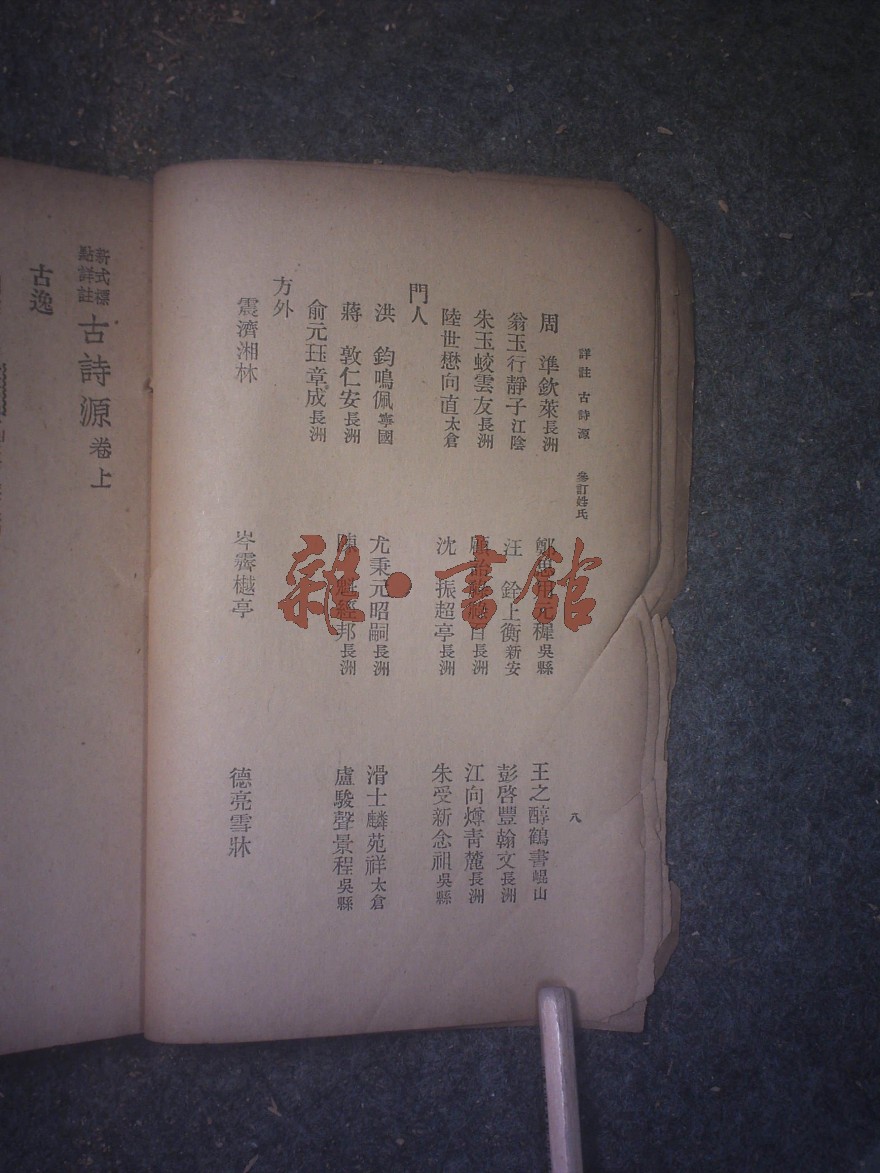 詳註 古詩源 參訂姓氏 八
周 準欽萊長洲
鄭 元穉吳縣
王之醇鶴書崐山
翁玉行靜子江陰
汪 銓上衡新安
彭啓豐翰文長洲
朱玉蛟雲友長洲
顧 百長洲
江向燇青麓長洲
陸世懋向直太倉
沈 振超亭長洲
朱受新念祖吳縣
門人
洪 鈞鳴佩寧國
尤秉元昭嗣長洲
滑士麟苑祥太倉
蔣 敦仁安長洲
陳 魁經邦長洲
盧駿聲景程吳縣
俞元珏章成長洲
方外
震濟湘林
岑霽樾亭
德亮雪牀
新式標點詳註 古詩源 卷上
古逸
雜·書館